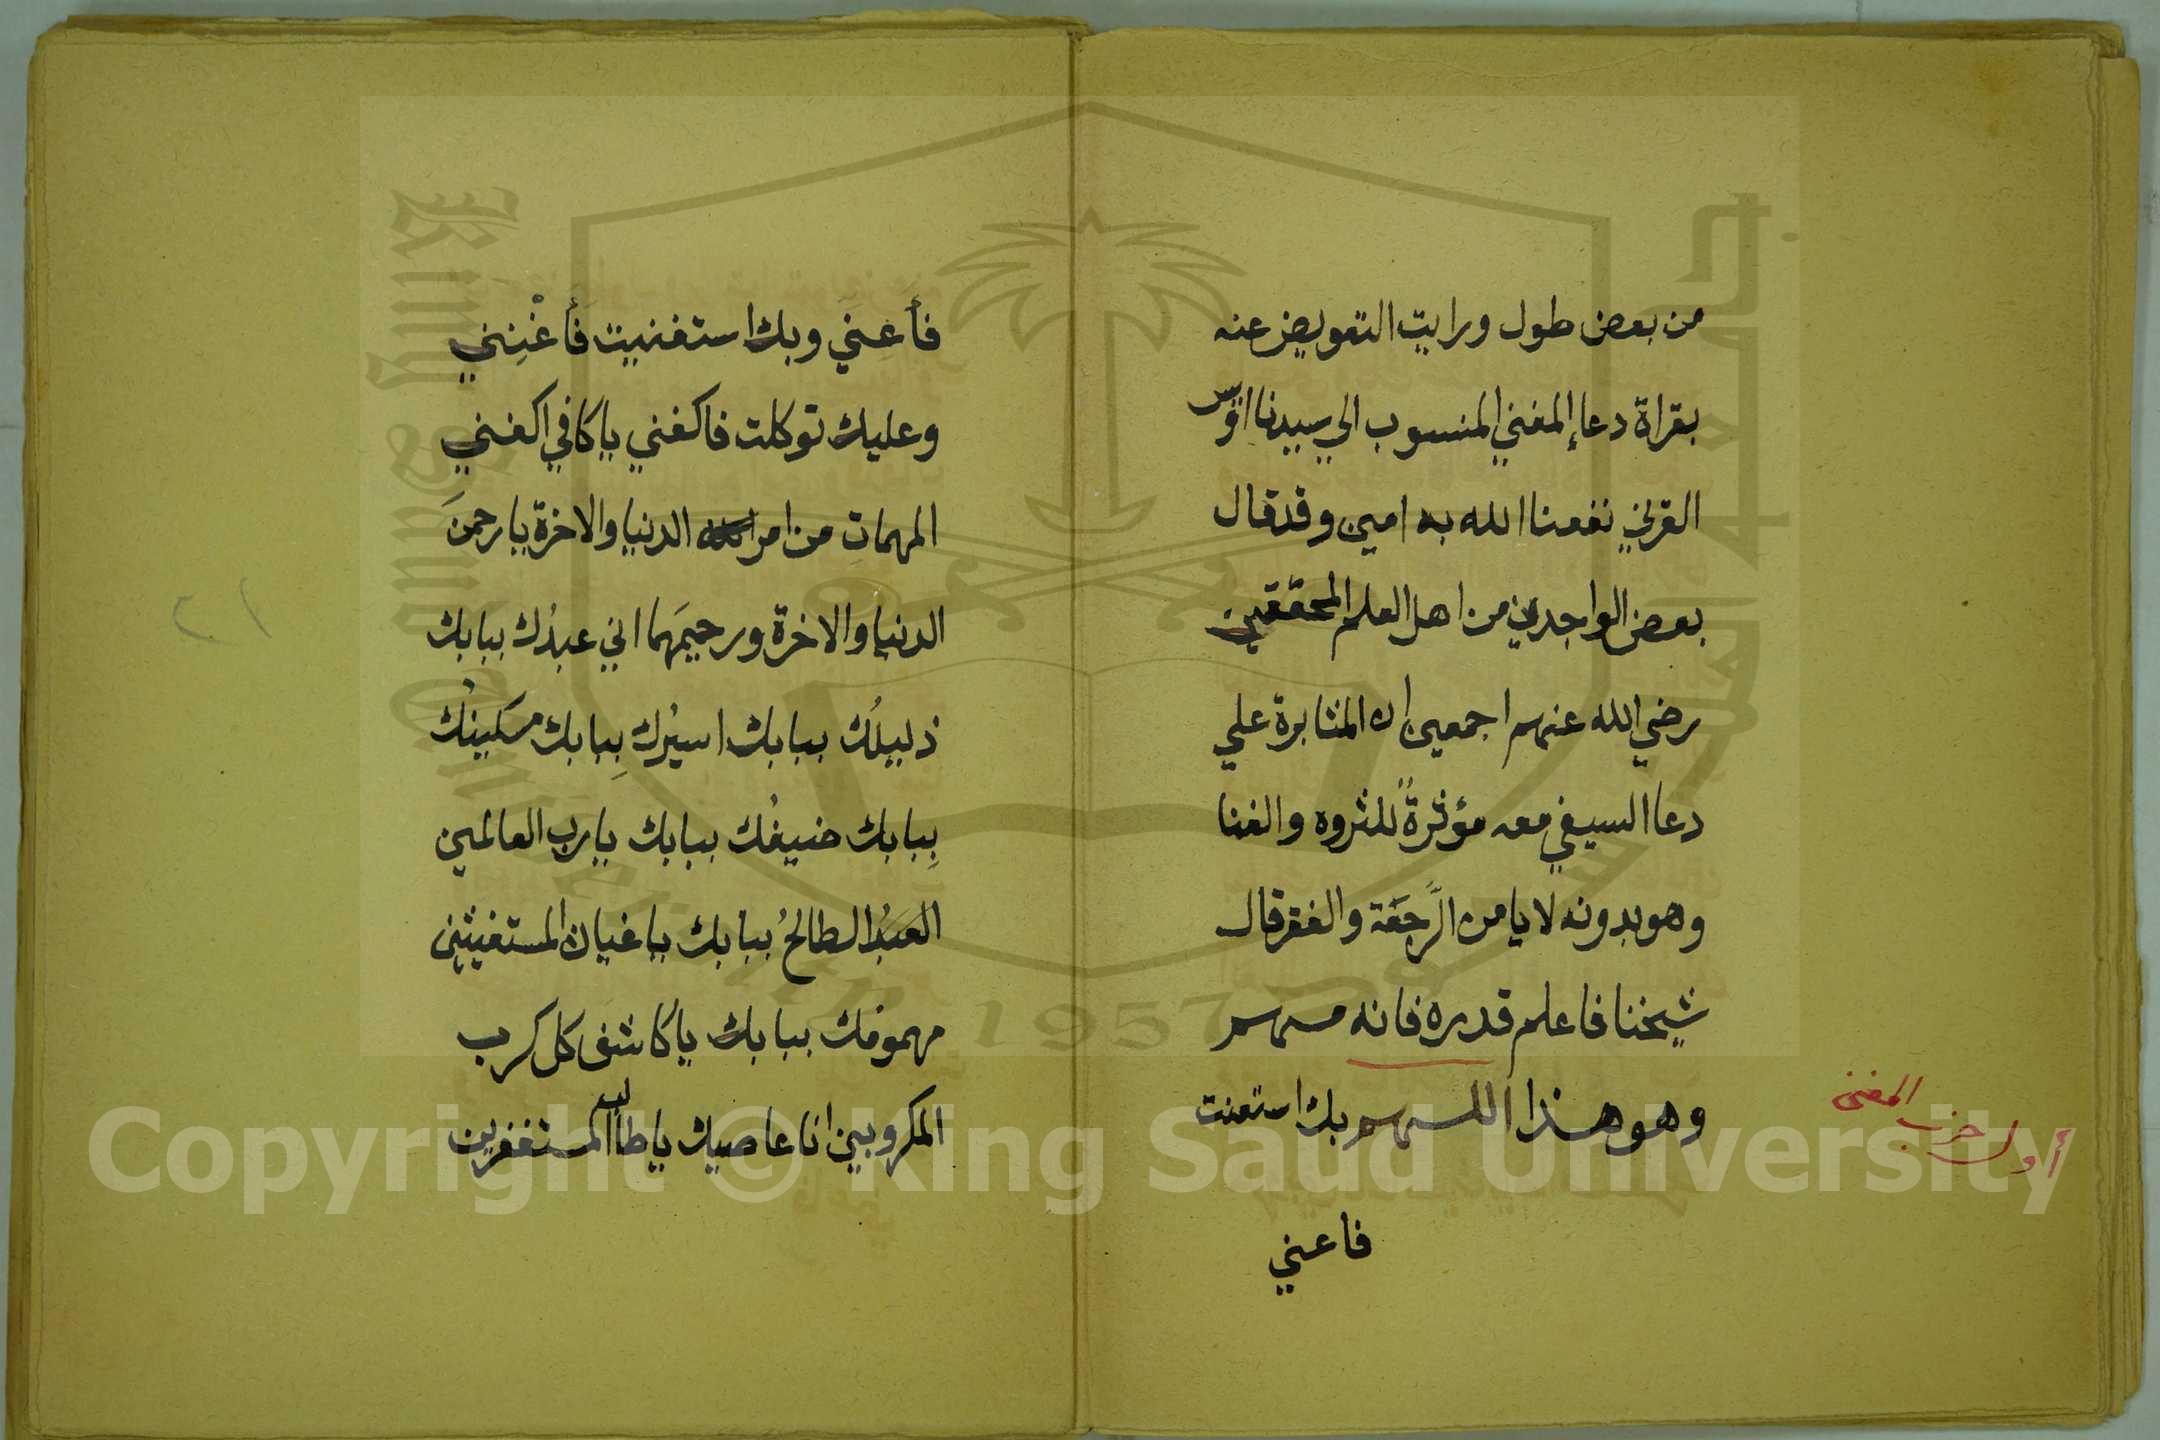 من بعض طول ورايت التعويض عنه
بقراة دعاإ المغني المنسوب الي سيدنا اوَّس
القرني نفعنا الله به امين وقد قال
بعض الواجدين من اهل العلم المحققين
رضي الله عنهم اجمعين ان المثابرة علي
دعا السيفي معه مؤثرةٌ للثروه والغنا
وهو بدونه لا يامن الرَّجعَة والفقر قال
شيخنا فاعلم قدره فانه مسهم
وهو هذا اللهم بك استعنت
أول حزب المغني
فاعني
فأعِنيَ وبك استغنيت فَأغْنِنِي
وعليك توكلت فاكفني ياكافي اكفني
المهماتِ من امر الدنيا والاخرة يا رحمنَ
الدنيا والاخرة ورحيمَهما اني عبدُك ببابك
ذليلُك ببابك اسيرُك بِبابك مسكينُك
بِبابك ضيفُك ببابك يارب العالمين
العبدُ الطالحُ ببابك ياغياث المستغيثين
مهمومك ببابك ياكاشف كل كرب
المكروبين انا عاصيك ياطالب المستغفرين
٢١
Copyright © King Saud University
King Saud University
1957